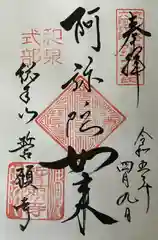 奉拝
令和五年
四月九日
阿弥陀如来
和泉
式部
誓願寺